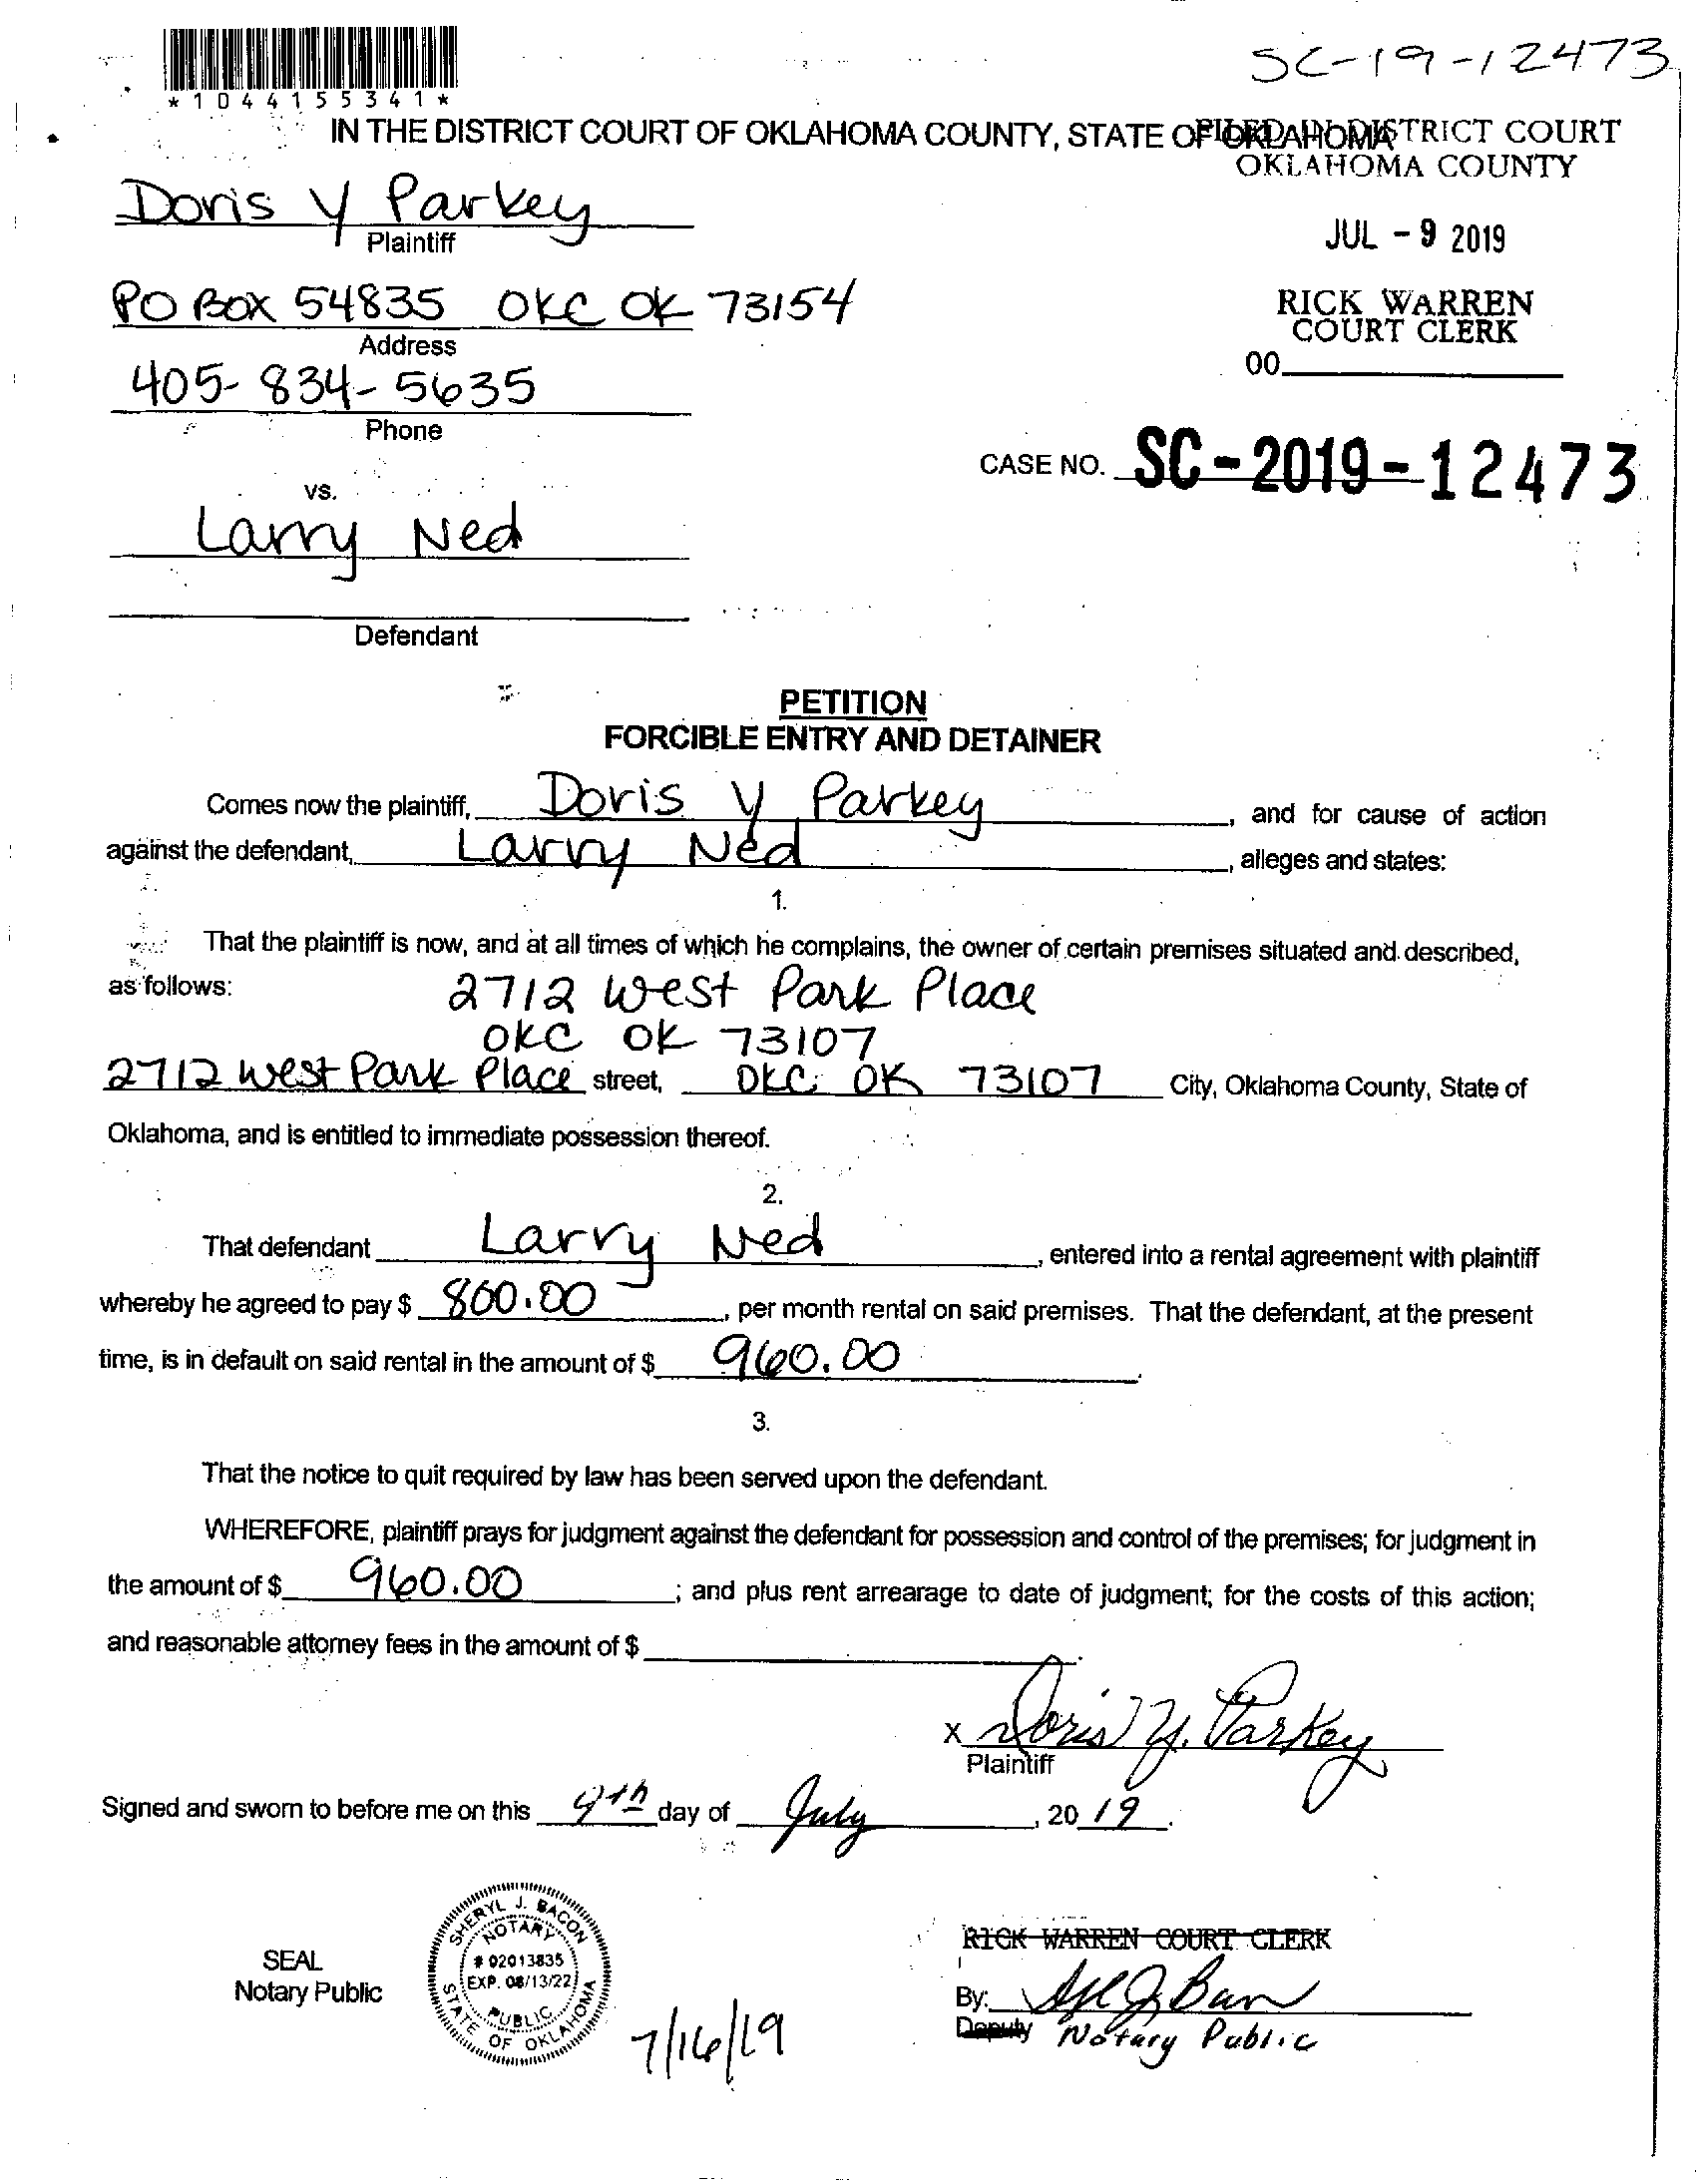 *1044155341*
SC-19-12473
IN THE DISTRICT COURT OF OKLAHOMA COUNTY, STATE OF OKLAHOMA
FILED IN DISTRICT COURT
OKLAHOMA COUNTY
Doris Y Parkey
Plaintiff
JUL - 9 2019
PO Box 54835 OKC OK 73154
Address
RICK WARREN
COURT CLERK
00
405-834-5635
Phone
CASE NO. SC-2019-12473
vs.
Larry Ned
Defendant
PETITION
FORCIBLE ENTRY AND DETAINER
Comes now the plaintiff, Doris Y Parkey, and for cause of action
against the defendant, Larry Ned, alleges and states:
1.
That the plaintiff is now, and at all times of which he complains, the owner of certain premises situated and described,
as follows: 2712 West Park Place
OKC OK 73107
2712 West Park Place street, OKC OK 73107 City, Oklahoma County, State of
Oklahoma, and is entitled to immediate possession thereof.
2.
That defendant Larry Ned, entered into a rental agreement with plaintiff
whereby he agreed to pay $ 800.00, per month rental on said premises. That the defendant, at the present
time, is in default on said rental in the amount of $ 960.00.
3.
That the notice to quit required by law has been served upon the defendant.
WHEREFORE, plaintiff prays for judgment against the defendant for possession and control of the premises; for judgment in
the amount of $ 960.00; and plus rent arrearage to date of judgment; for the costs of this action;
and reasonable attorney fees in the amount of $
x Doris Y. Parkey
Plaintiff
Signed and sworn to before me on this 9th day of July, 2019.
SHERYL J. BACON
NOTARY
# 02013835
EXP. 08/13/22
PUBLIC
STATE OF OKLAHOMA
SEAL
Notary Public
RICK WARREN COURT CLERK
By:
Deputy Notary Public
7/16/19